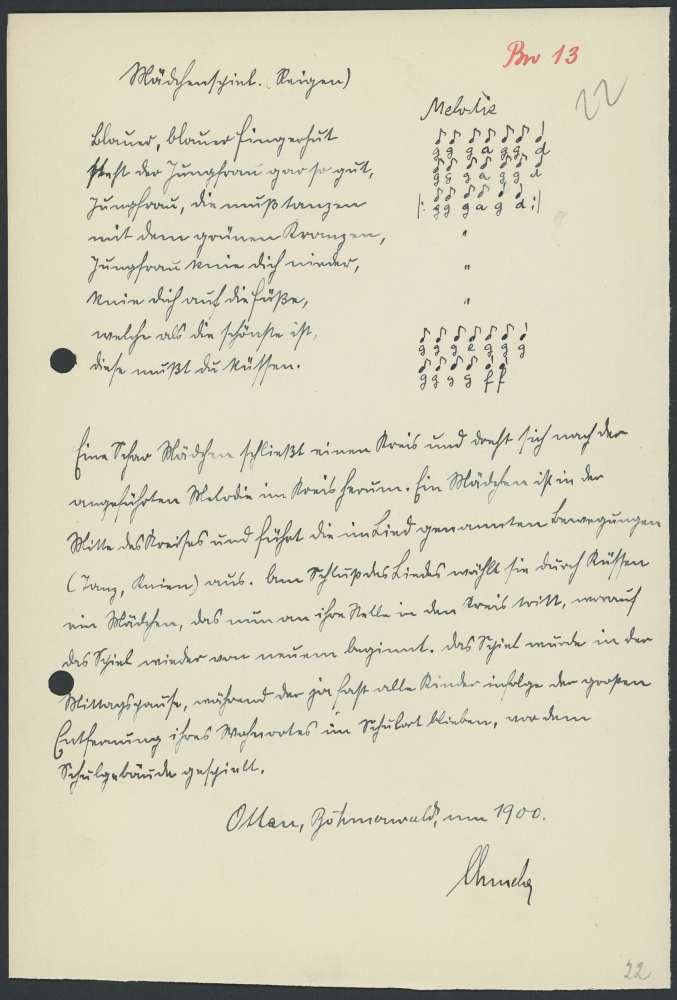 Bw 13
22
Mädchenspiel. (Reigen)
Melodie
Blauer, blauer Fingerhut
g g g a g g d
steht der Jungfrau gar so gut,
g g g a g g d
Jungfrau, die muß tanzen
|: g g g a g d :|
mit dem grünen Kranzen,
"
Jungfrau knie dich nieder,
"
knie dich auf die Füße,
"
welche als die schönste ist,
g g g e g g g
diese mußt du küssen.
g g g g f f
Eine Schar Mädchen schließt einen Kreis und dreht sich nach der
angeführten Melodie im Kreis herum. Ein Mädchen ist in der
Mitte des Kreises und führt die im Lied genannten Bewegungen
(Tanz, Knien) aus. Am Schluß des Liedes wählt sie durch Küssen
ein Mädchen, das nun an ihre Stelle in den Kreis tritt, worauf
das Spiel wieder von neuem beginnt. Das Spiel wurde in der
Mittagspause, während der ja fast alle Kinder infolge der großen
Entfernung ihres Wohnortes im Schulort blieben, vor dem
Schulgebäude gespielt.
Ottau, Böhmerwald, um 1900.
22